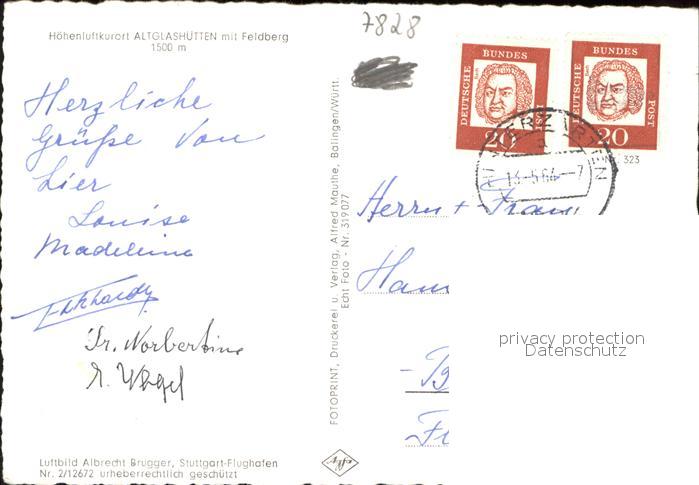 Höhenluftkurort ALTGLASHÜTTEN mit Feldberg
1500 m
7828
Herzliche
Grüße von
hier
Louise
Madeleine
Sr. Norbertine
FOTOPRINT, Druckerei u. Verlag, Alfred Mauthe, Balingen/Württ.
Echt Foto - Nr. 319077
DEUTSCHE BUNDES POST
20
DEUTSCHE BUNDES POST
20
323
13.-5.64.-7
Herrn + Frau
privacy protection
Datenschutz
Luftbild Albrecht Brugger, Stuttgart-Flughafen
Nr. 2/12672 urheberrechtlich geschützt